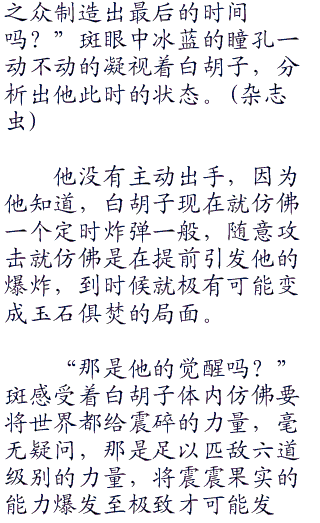 之众制造出最后的时间
吗？”斑眼中冰蓝的瞳孔一
动不动的凝视着白胡子，分
析出他此时的状态。(杂志
虫)
他没有主动出手，因为
他知道，白胡子现在就仿佛
一个定时炸弹一般，随意攻
击就仿佛是在提前引发他的
爆炸，到时候就极有可能变
成玉石俱焚的局面。
“那是他的觉醒吗？”
斑感受着白胡子体内仿佛要
将世界都给震碎的力量，毫
无疑问，那是足以匹敌六道
级别的力量，将震震果实的
能力爆发至极致才可能发